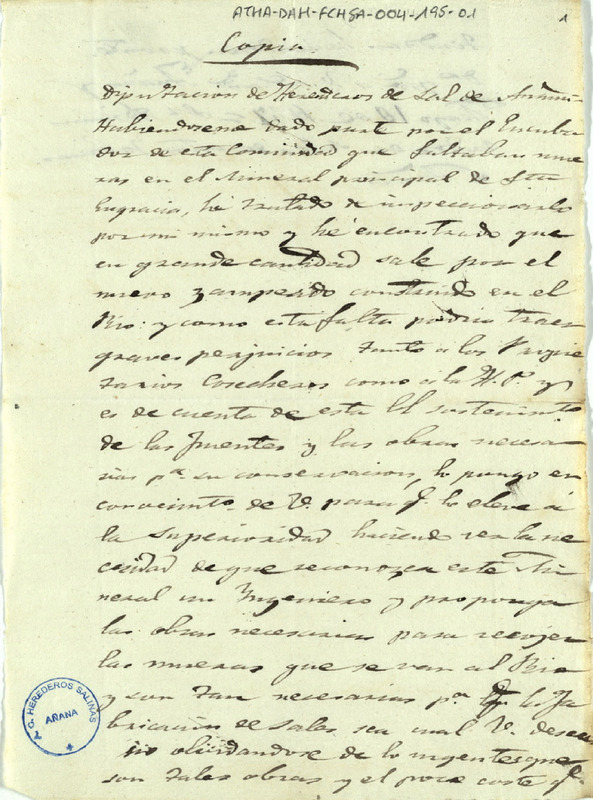 ATHA-DAH-FCHSA-004-195-01
1
Copia
Diputacion de Herederos de Sal de Añana
Habiendoseme dado parte por el Encuba
dor de esta Comunidad que faltaban mue
ras en el Mineral principal de Sta
Engracia, hé tratado de inspeccionarlo
por mi mismo y hé encontrado que
en grande cantidad sale por el
nuevo zampeado construido en el
Rio: y como esta falta podria traer
graves perjuicios tanto a los Propie
tarios Cosecheros como á la H.ª P.ª y
es de cuenta de esta el sostenimto
de las fuentes y las obras necesa
rias pª su conservacion, lo pongo en
conocimto de V. para q.e lo eleve á
la superioridad haciendo ver la ne
cesidad de que reconozca este Mi
neral un Yngeniero y proponga
las obras necesarias para recojer
las mueras que se van al Rio
y son tan necesarias pª la fa
bricacion de sales, sea cual V. desea
no olvidandose de lo urgentes que
son tales obras y el poco coste q.e
C. G. HEREDEROS SALINAS
AÑANA